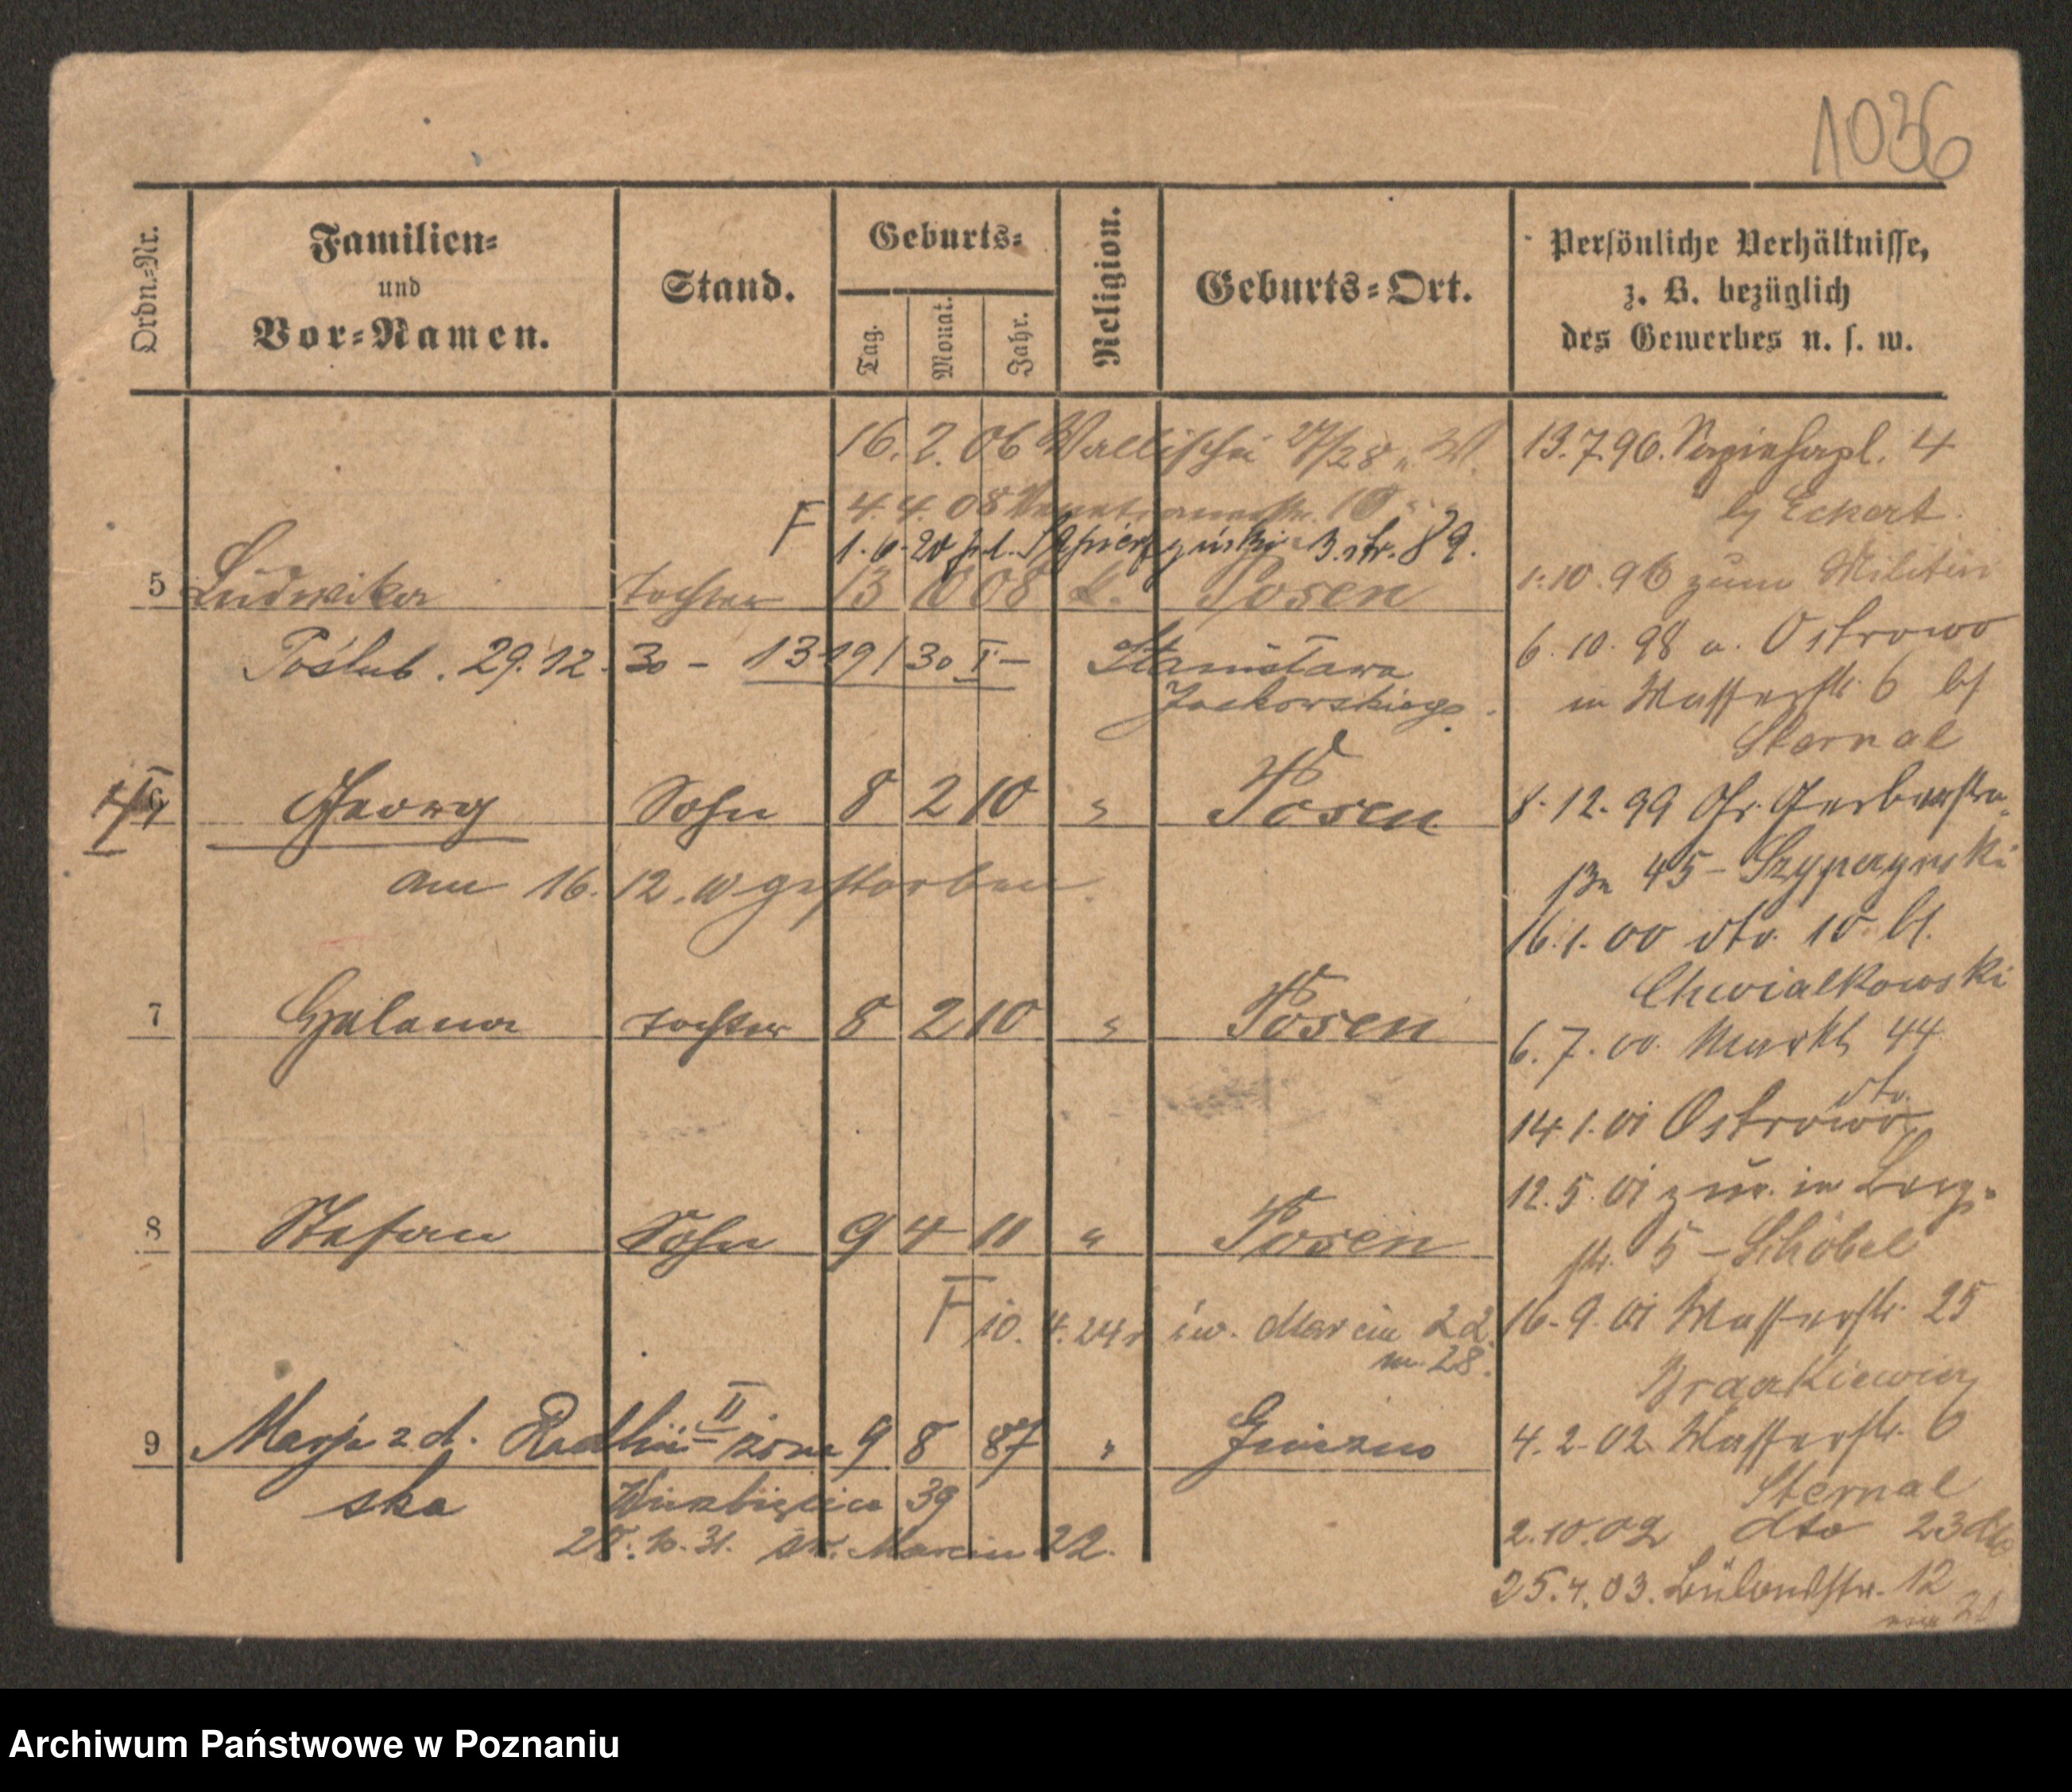 1036
Ordn.=Nr.
Familien=
und
Vor=Namen.
Stand.
Geburts=
Tag.
Monat.
Jahr.
Religion.
Geburts=Ort.
Persönliche Verhältnisse,
z. B. bezüglich
des Gewerbes u. s. w.
16. 2. 06 Wallischei 27/28
4. 4. 08
F 1. 6. 20
5 Ludwika Tochter 13 10 08 k. Posen
Poślub. 29. 12. 30 - 1319/30 I - Stanisława
Jackowskiego.
6 Georg Sohn 8 2 10 " Posen
am 16. 12. 10 gestorben
7 Helena Tochter 8 2 10 " Posen
8 Stefan Sohn 9 4 11 " Posen
F 10. 4. 24 r św. Marcin 22
m. 28.
9 Marja z d. Radliń= II żona 9 8 87 " Gniezno
ska Wierzbięcice 39
28. 10. 31. św. Marcin 22.
13. 7. 96. Sapiehapl. 4
b/ Eckert.
1. 10. 96 zum Militär
6. 10. 98 a. Ostrowo
in Wasserstr. 6 bf
Sternal
8. 12. 99 Gr. Gerberstr.
45 -
16. 1. 00 dto. 10 bf.
Chwialkowski
6. 7. 00. Markt 44
dto.
14. 1. 01 Ostrowo
12. 5. 01 zur. in Berg=
str. 5 - Schöbel
16. 9. 01 Wasserstr. 25
4. 2. 02 Wasserstr. 6
Sternal
2. 10. 02 dto 23
25. 4. 03. Bülowstr. 12
Archiwum Państwowe w Poznaniu